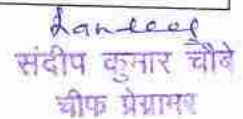 संदीप कुमार चौबे
चीफ प्रोग्रामर